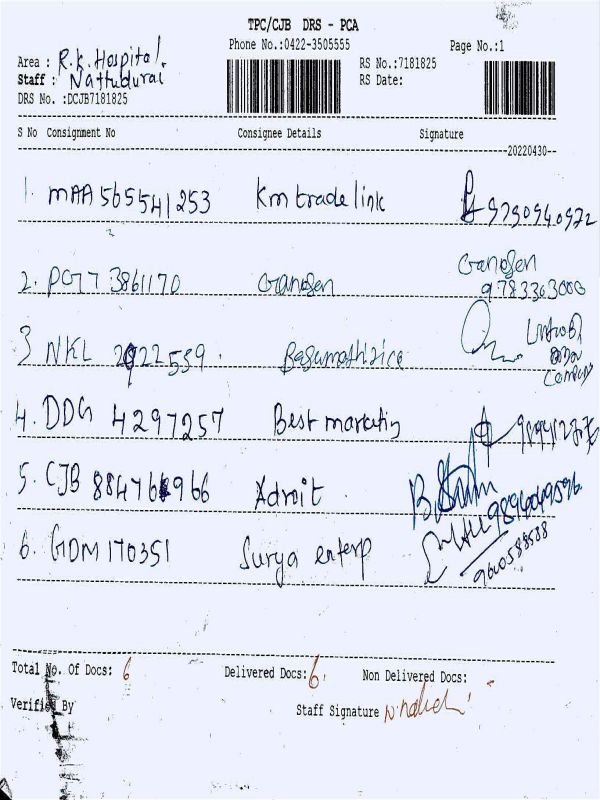 TPC/CJB DRS - PCA
Phone No.:0422-3505555 Page No.:1
Area : R.K. Hospital.
Staff : Nattudurai
RS No.:7181825
RS Date:
DRS No. :DCJB7181825
S No Consignment No Consignee Details Signature
20220430
1. MAA 565541253 Km trade link 9790940972
2. PGTT 3861170 Ganofen Ganofen
9783363000
3 NKL 2922539.
4. DDG 4297257 Best marketing
5. CJB 884761966 Adroit 9894049596
6. GDM 170351 Surya enterp 9600588588
Total No. Of Docs: 6 Delivered Docs: 6. Non Delivered Docs:
Verified By Staff Signature